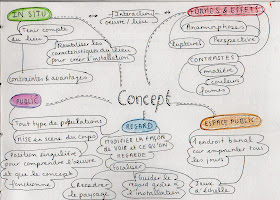 IN SITU
Tenir compte
du lieu
Réutiliser les
caractéristiques du lieu
pour créer l'installation
contraintes & avantages
Interaction
œuvre / lieu
FORMES & EFFETS
Anamorphose
Ruptures
Perspective
CONTRASTES
matière
couleur
formes
Concept
PUBLIC
Tout type de populations
Mise en scène du corps
Position singulière
pour comprendre l'œuvre
et que le concept
fonctionne
REGARD
MODIFIER LA FAÇON
DE VOIR et CE QU'ON
REGARDE
Focaliser
Guider le
regard grâce à
l'installation
le paysage
ESPACE PUBLIC
1 endroit banal
car emprunté tous
les jours
Jeux
d'échelle